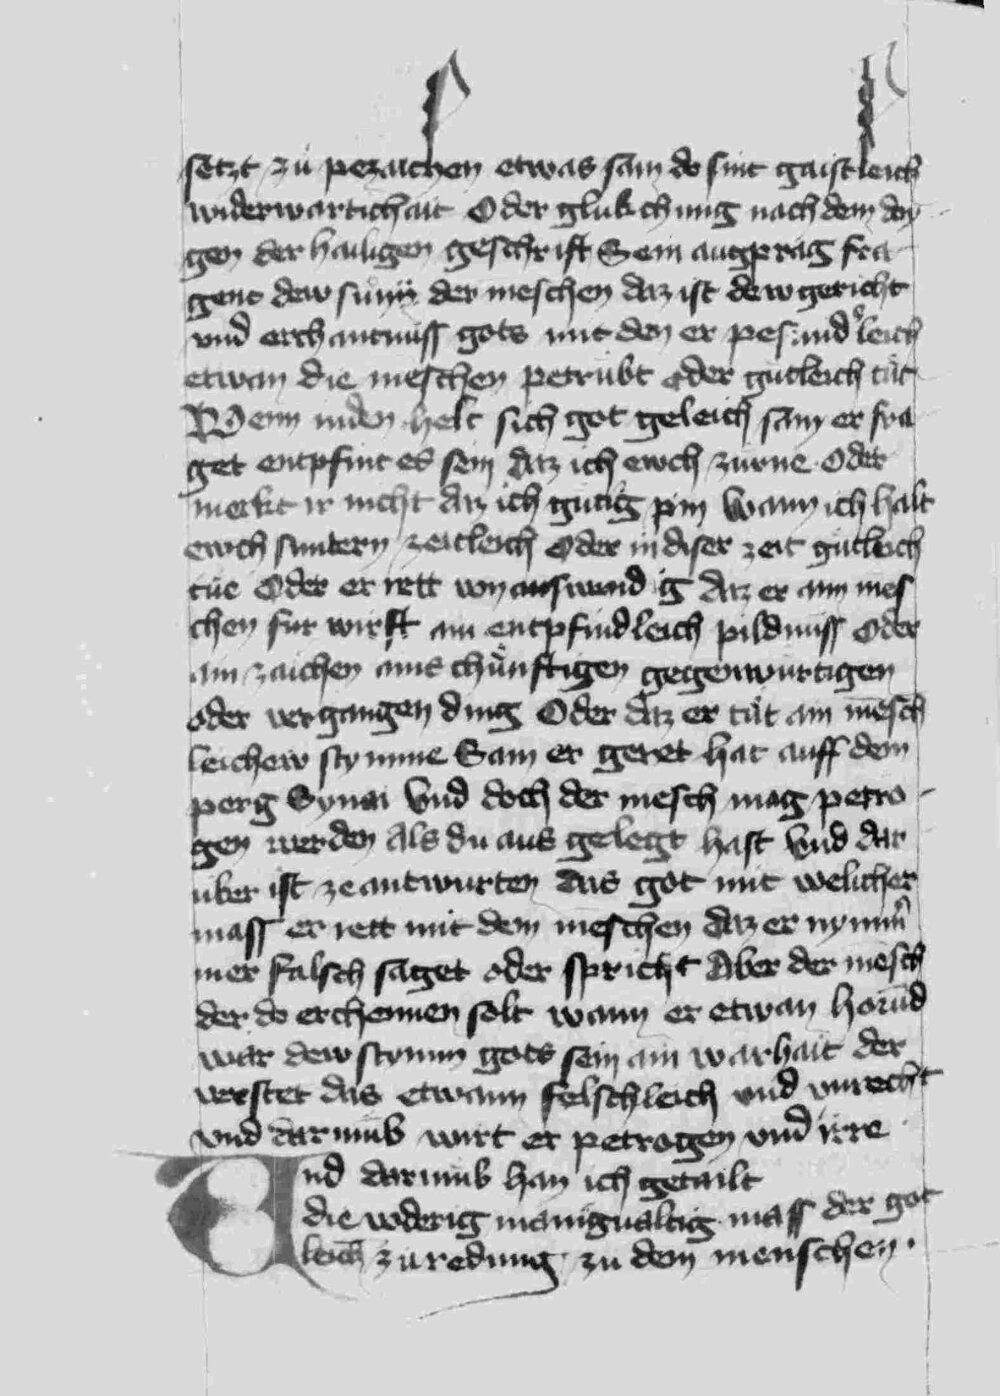 setzt zu pezaichen etwas sam do sint gaistleich
widerwartichait Oder glukchung nach dem
gen der hailigen geschrift Sein augprag fra
gent dew sünn der meschen daz ist dew gericht
vnd erchantnuss gots mit den er pesundleich
etwan die meschen petrübt oder gütleich tüt
Wenn mden helt sich got geleich sam er fra
get entpfint es sein daz ich ewch zürne Oder
merkt ir nicht daz ich gütig pin wann ich halt
ewch suntern zeitleich Oder in diser zeit gütleich
tüe Oder er rett von auswendig daz er aim mes
chen fur wirft ain entpfindleich pildnuss Oder
ain zaichen ains chünftigen gegenwürtigen
oder vergangen ding Oder daz er tüt ain mesch
leichew stymme Sam er geret hat auff dem
perg Synai Vnd doch der mesch mag petro
gen werden Als du aus gelegt hast Vnd dar
uber ist ze antwurten das got mit welicher
mass er rett mit dem meschen daz er nymm
mer falsch saget oder spricht Aber der mesch
der do erchennen solt wann er etwan horund
wär dew stymm gots sein ain warhait der
verstet das etwann felschleich vnd vnrecht
vnd darumb wirt er petrogen vnd irre
Vnd darumb han ich getailt
die voderig manigualtig mass der got
leich zu redung zu dem menschen.